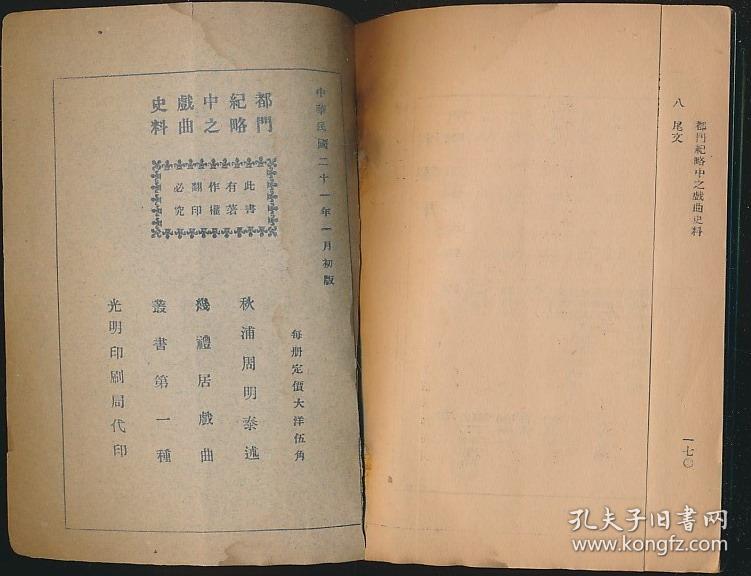 都門紀略中之戲曲史料
八 尾文
一七〇
中華民國二十一年一月初版
每册定價大洋伍角
都門
紀略
中之
戲曲
史料
此書
有著
作權
翻印
必究
秋浦周明泰述
幾禮居戲曲
叢書第一種
光明印刷局代印
孔夫子旧书网
www.kongfz.com